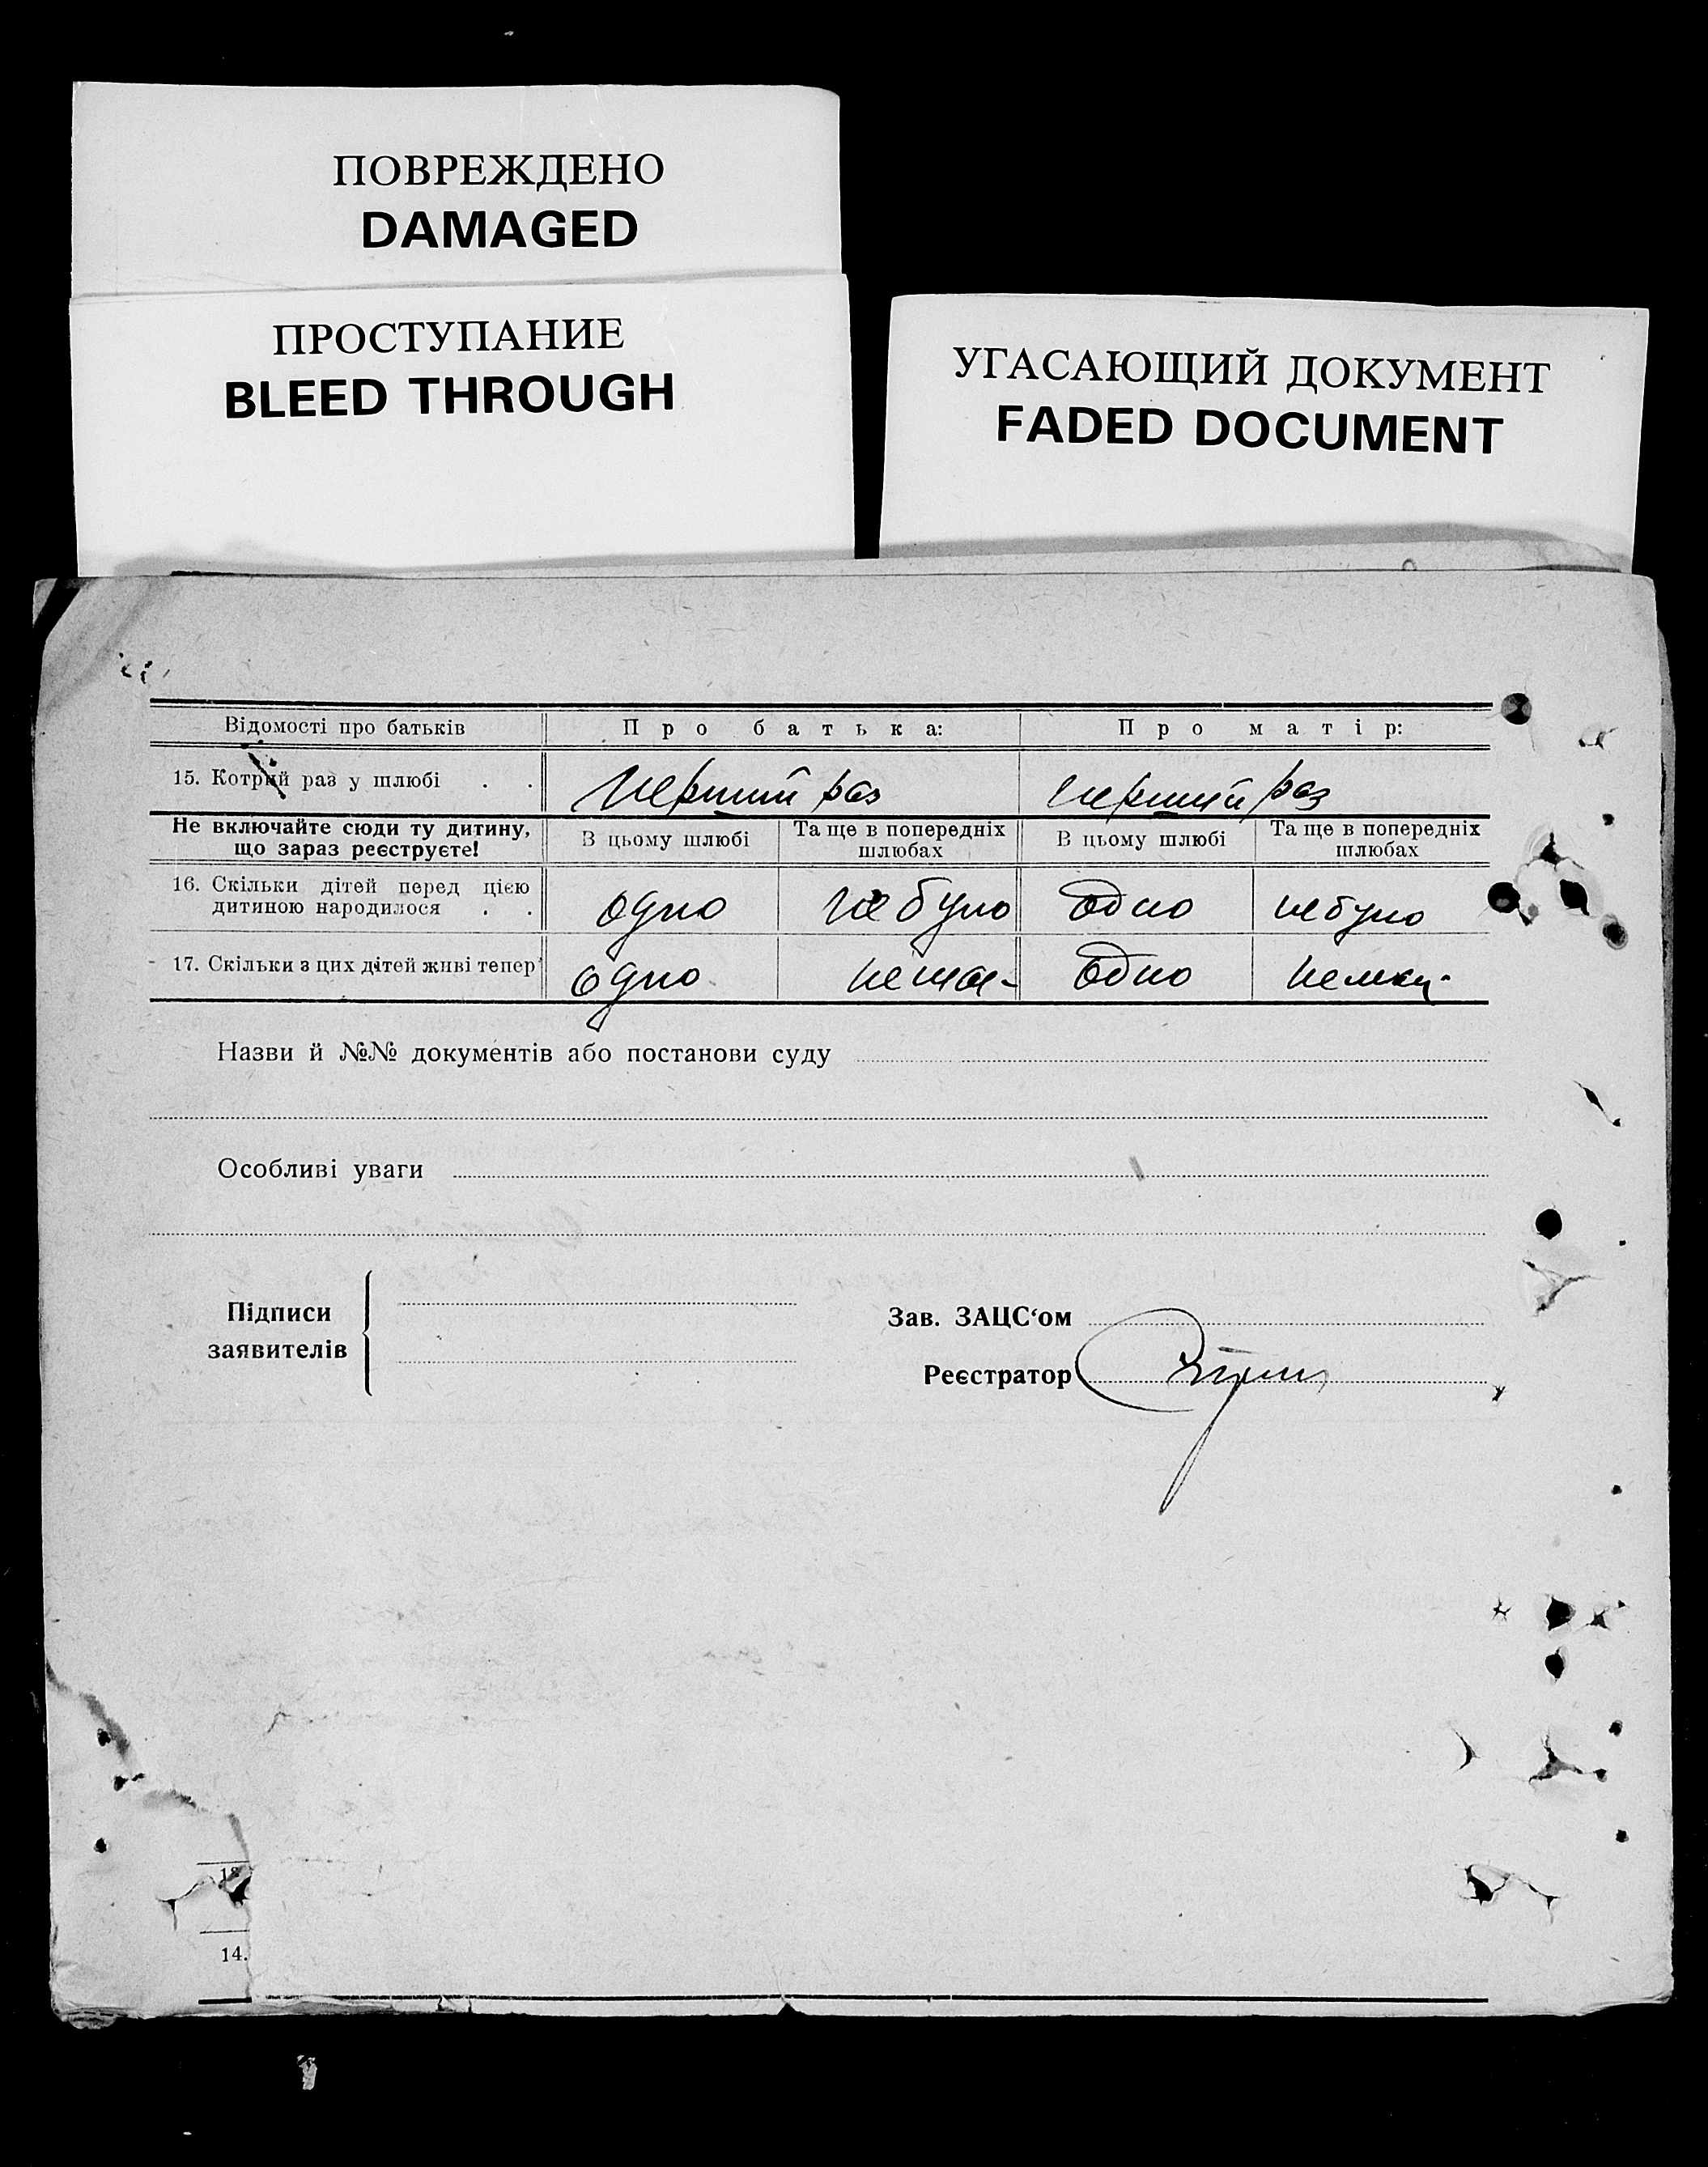 ПОВРЕЖДЕНО
DAMAGED
ПРОСТУПАНИЕ
BLEED THROUGH
УГАСАЮЩИЙ ДОКУМЕНТ
FADED DOCUMENT
Відомості про батьків Про батька: Про матір:
15. Котрий раз у шлюбі . . перший раз перший раз
Не включайте сюди ту дитину, що зараз реєструєте! В цьому шлюбі Та ще в попередніх шлюбах В цьому шлюбі Та ще в попередніх шлюбах
16. Скільки дітей перед цією дитиною народилося . . одно не було одно не було
17. Скільки з цих дітей живі тепер одно немає одно немає
Назви й №№ документів або постанови суду
Особливі уваги
Підписи
заявителів
Зав. ЗАЦС‘ом
Реєстратор
14.